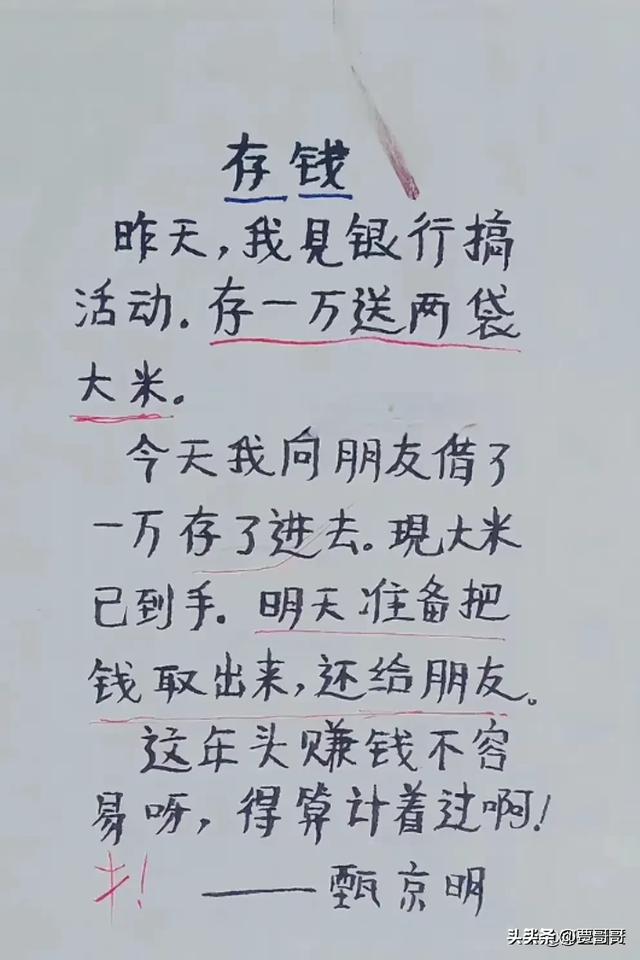 存钱
昨天,我见银行搞
活动.存一万送两袋
大米。
今天我向朋友借了
一万存了进去。現大米
已到手。明天准备把
钱取出来,还给朋友。
这年头赚钱不容
易呀,得算计着过啊!
——甄京明
头条@贾哥哥